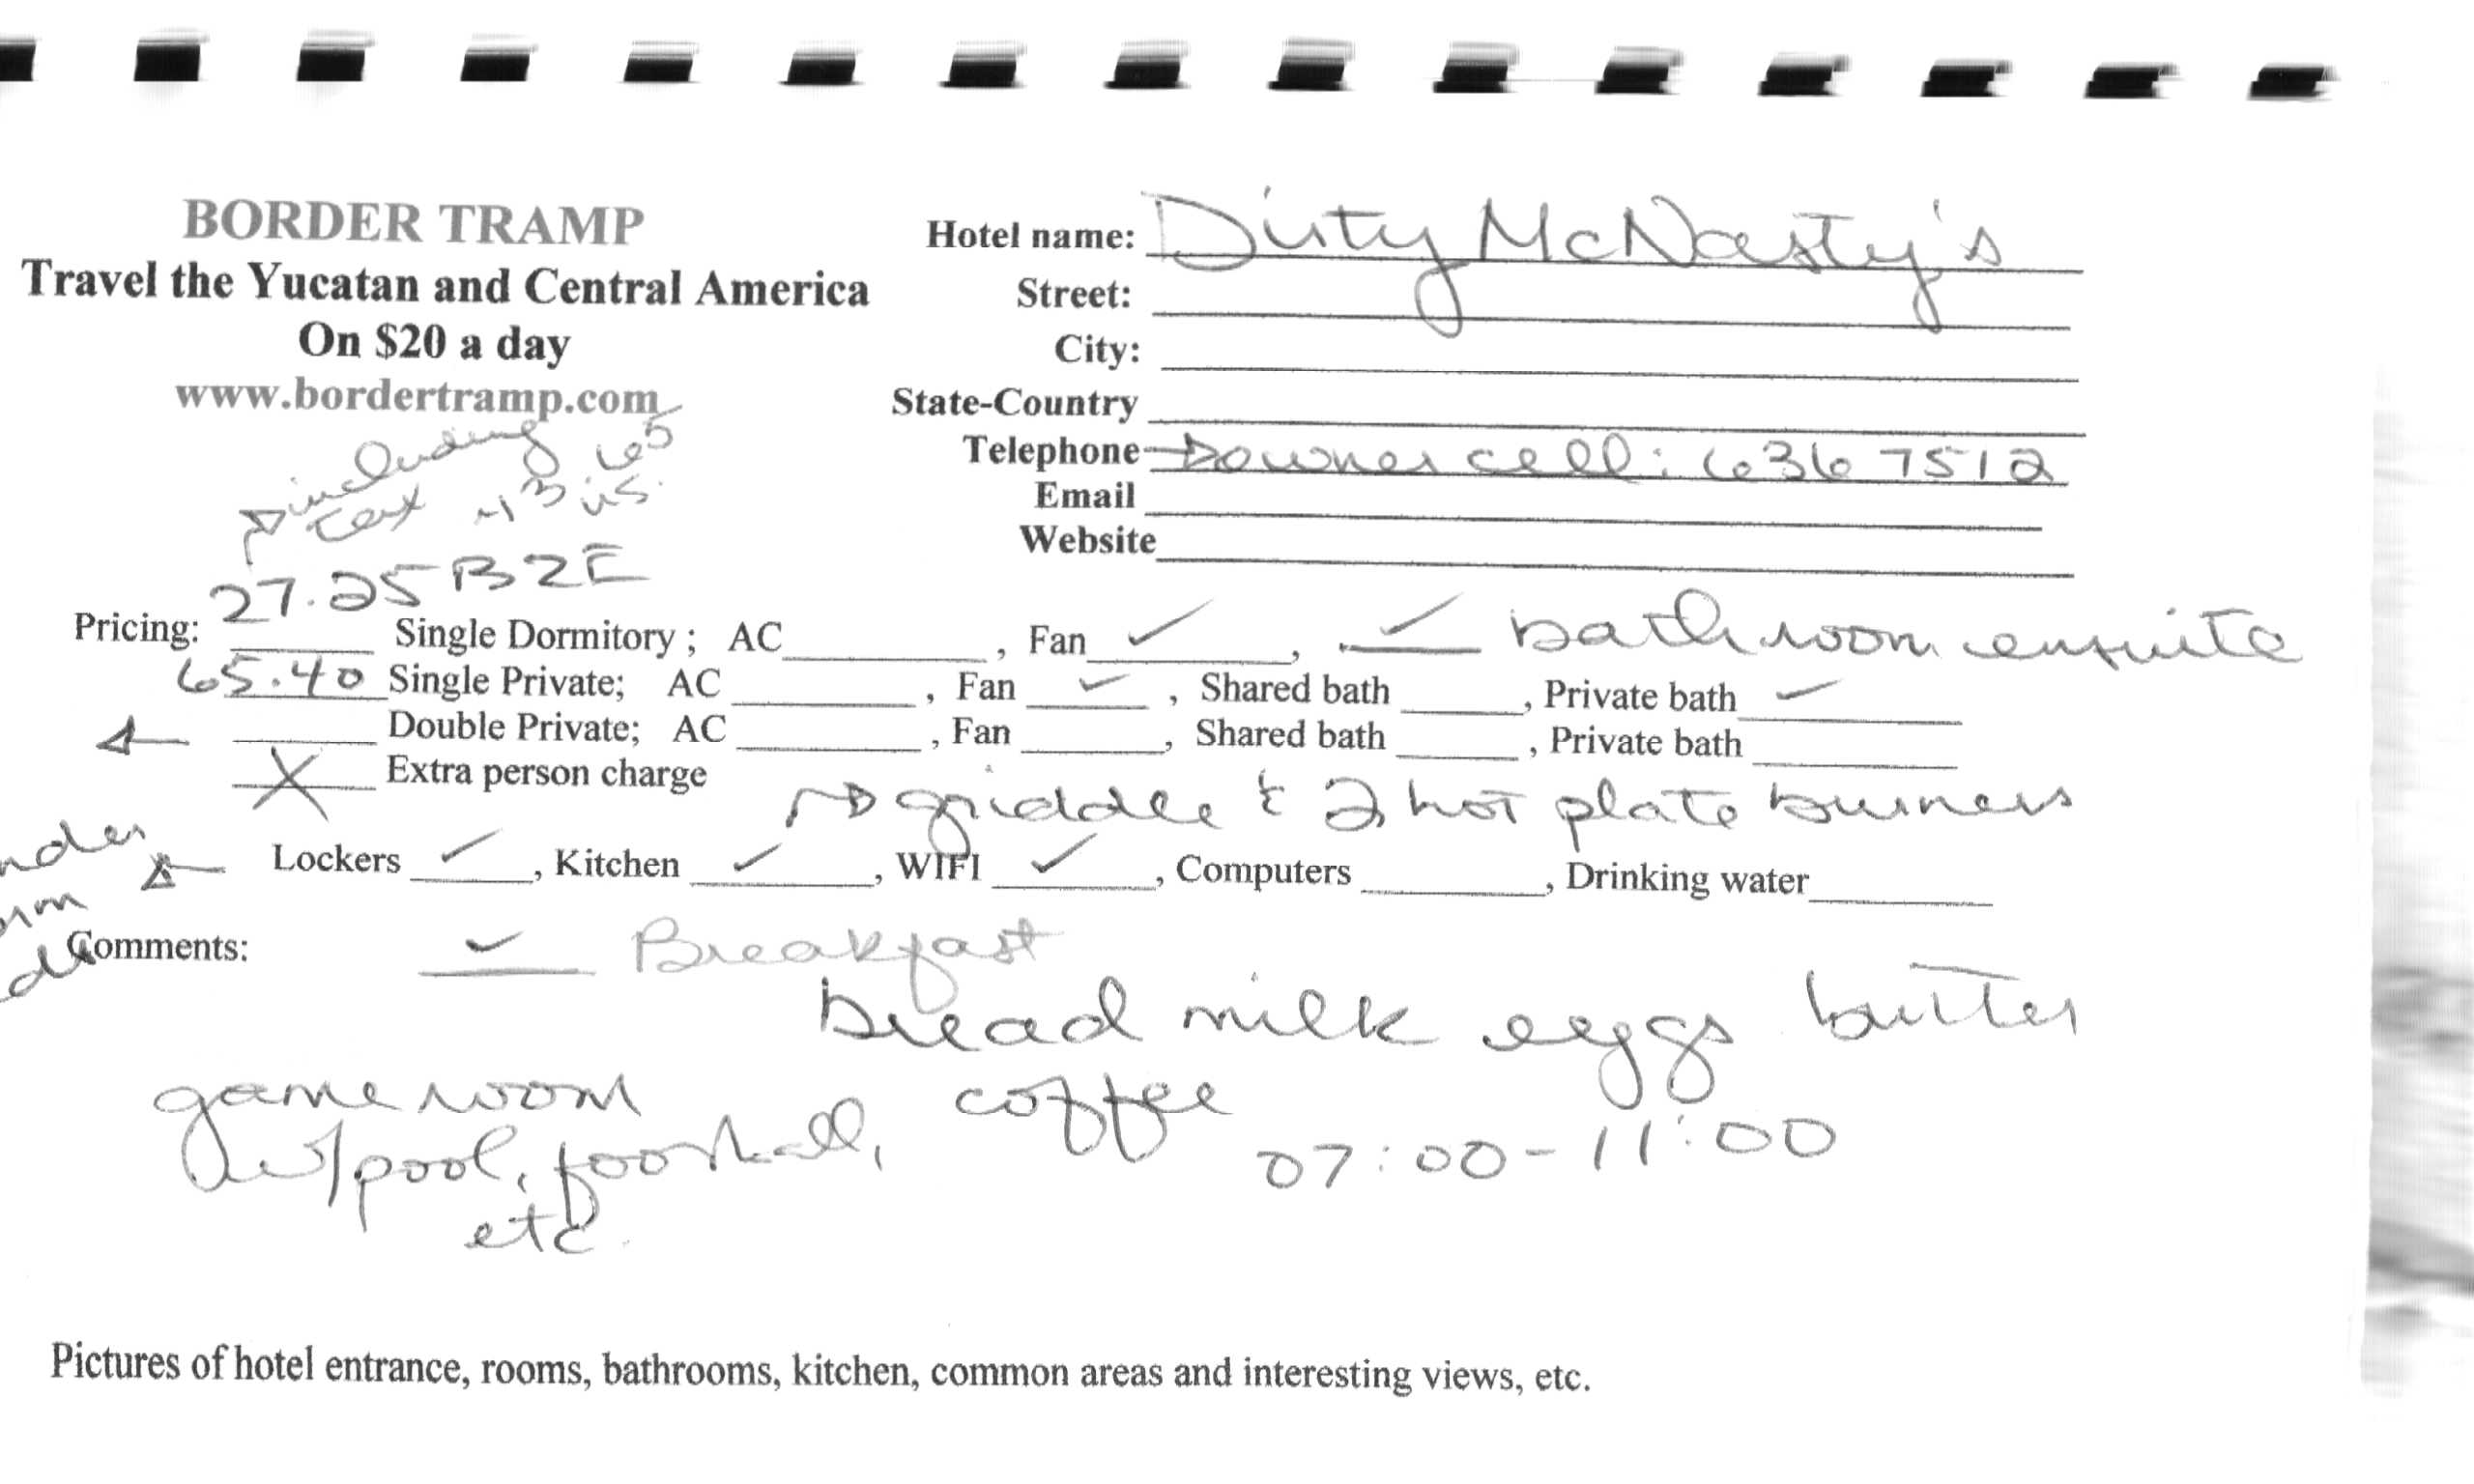 BORDER TRAMP
Travel the Yucatan and Central America
On $20 a day
www.bordertramp.com
Hotel name: Dirty McNasty's
Street:
City:
State-Country
Telephone owner cell: 636 7512
Email
Website
including
tax ~13 us.
27.25 BZE
Pricing: Single Dormitory ; AC , Fan ✓ , ✓ bathroom ensuite
65.40 Single Private; AC , Fan ✓ , Shared bath , Private bath ✓
Double Private; AC , Fan , Shared bath , Private bath
X Extra person charge
griddle & 2 hot plate burners
Lockers ✓ , Kitchen ✓ , WIFI ✓ , Computers , Drinking water
Comments: ✓ Breakfast
bread milk eggs butter
coffee
07:00-11:00
game room
w/pool, foosball,
etc.
Pictures of hotel entrance, rooms, bathrooms, kitchen, common areas and interesting views, etc.